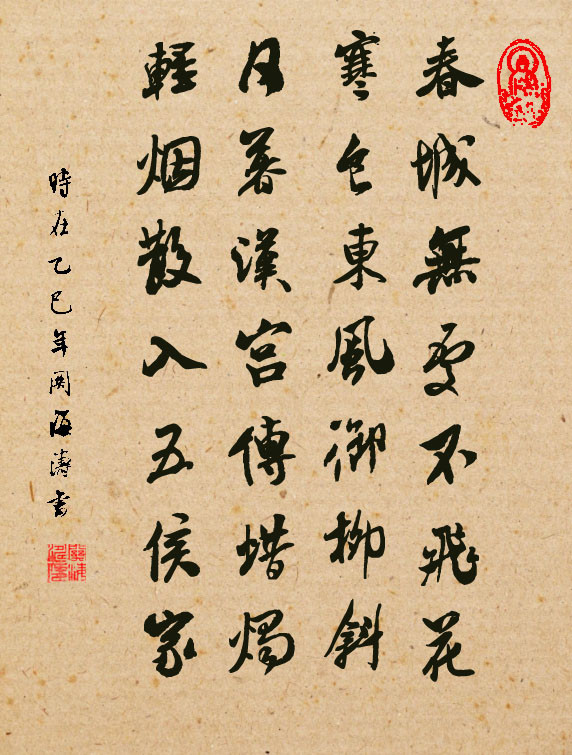 春城無處不飛花
寒食東風御柳斜
日暮漢宮傳蜡燭
輕烟散入五侯家
時在乙巳年関海濤書